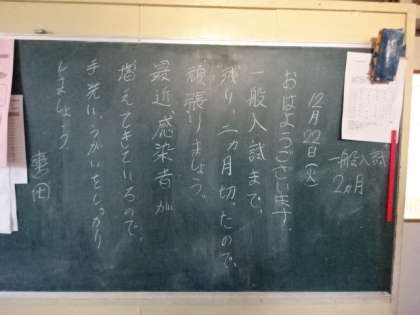 12月22日(火)
おはようございます。
一般入試まで、
残り、二カ月切ったので、
頑張りましょう。
最近感染者が
増えてきているので、
手洗い、うがいをしっかり
しましょう
一般入試
2カ月